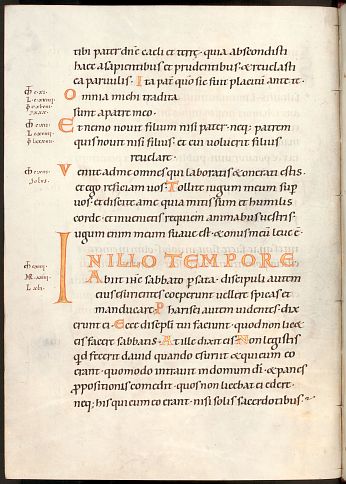 tibi pater dne caeli et terre · quia abscondisti
haec a sapientibus et prudentibus · & reuelasti
ea paruulis · Ita pat quo sic fuit placitu ante te ·
Omnia michi tradita
sunt a patre meo ·
Et nemo nouit filium nisi pater · neq; patrem
quis nouit nisi filius · et cui uoluerit filius
reuelare ·
Venite ad me omnes qui laboratis & onerati estis ·
et ego reficiam uos · Tollite iugum meum sup
uos · et discite a me quia mitis sum et humilis
corde · et inuenietis requiem animabus uestris ·
iugum enim meum suaue est · & onus meu leue e ·
IN ILLO TEMPORE
Abiit ihc sabbato p sata · discipuli autem
eius esurientes coeperunt uellere spicas et
manducare · Pharisei autem uidentes · dix
erunt ei · Ecce discipli tui faciunt · quod non lic&
eis facere sabbatis · At ille dixit eis · Non legistis
qd fecerit dauid quando esuriit · & qui cum eo
erant · quomodo intrauit in domum di · & panes
ppositionis comedit · quos non licebat ei edere ·
neq; his qui cum eo erant · nisi solis sacerdotibus ·